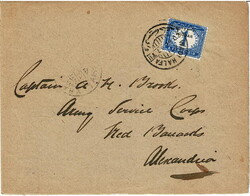 HALFA
Captain A. H. Brooke
Army Service Corps
Red Barracks
Alexandria